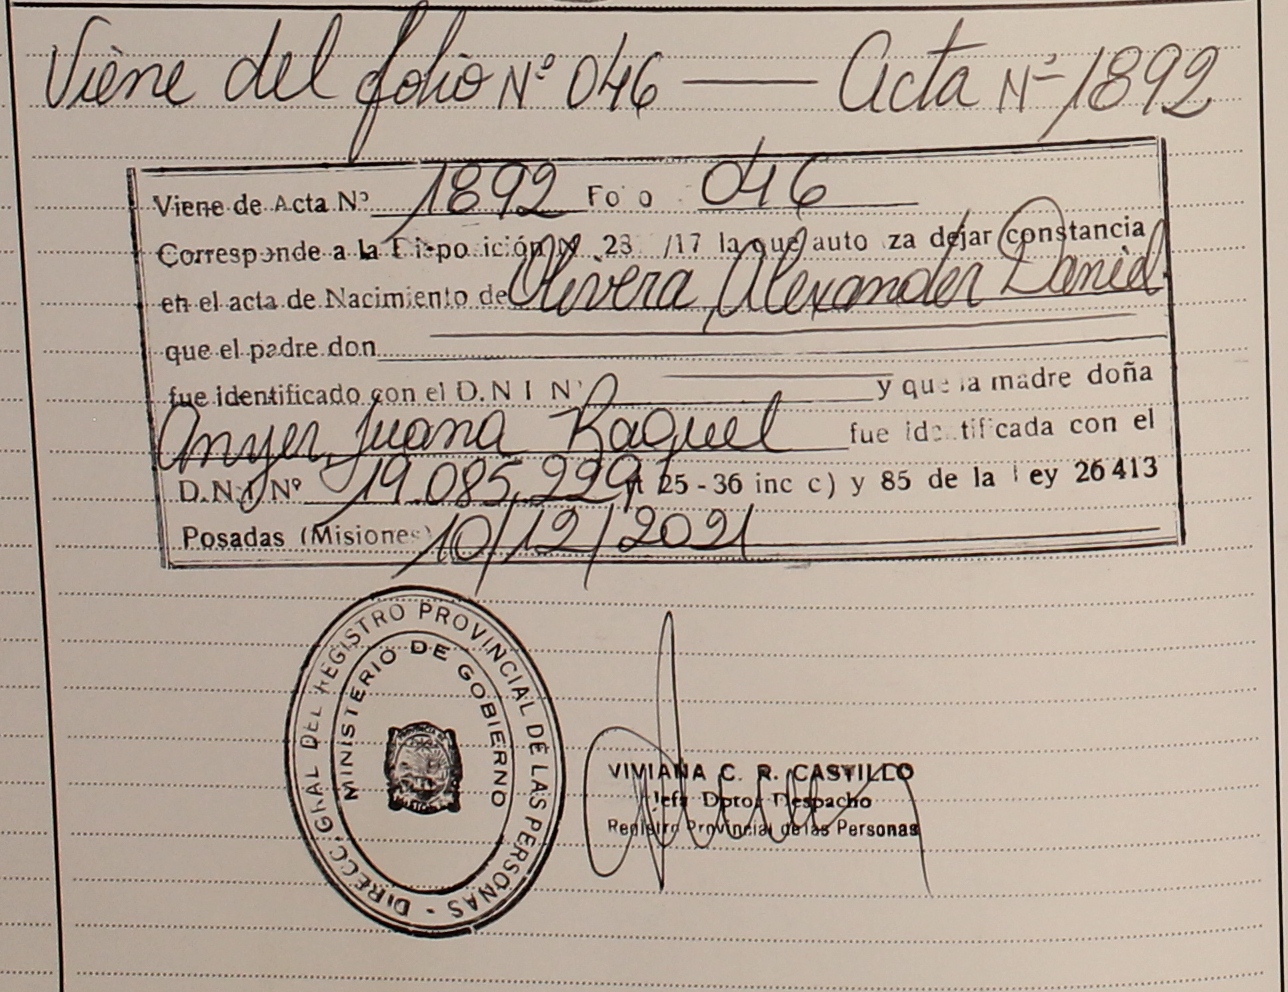 Viene del folio Nº 046 — Acta Nº 1892
Viene de Acta Nº 1892 Fo o 046
Corresponde a la Disposición Nº 23 /17 la que auto za dejar constancia
en el acta de Nacimiento de Olivera, Alexander Daniel
que el padre don
fue identificado con el D.N I Nº y que la madre doña
Anyer, Juana Raquel fue ide tificada con el
D.N.I Nº 19.085.229 Art 25 - 36 inc c) y 85 de la ley 26 413
Posadas (Misiones) 10/12/2021
DIRECC. GRAL DEL REGISTRO PROVINCIAL DE LAS PERSONAS -
MINISTERIO DE GOBIERNO
VIVIANA C. R. CASTILLO
Jefa Dpto. Despacho
Registro Provincial de las Personas